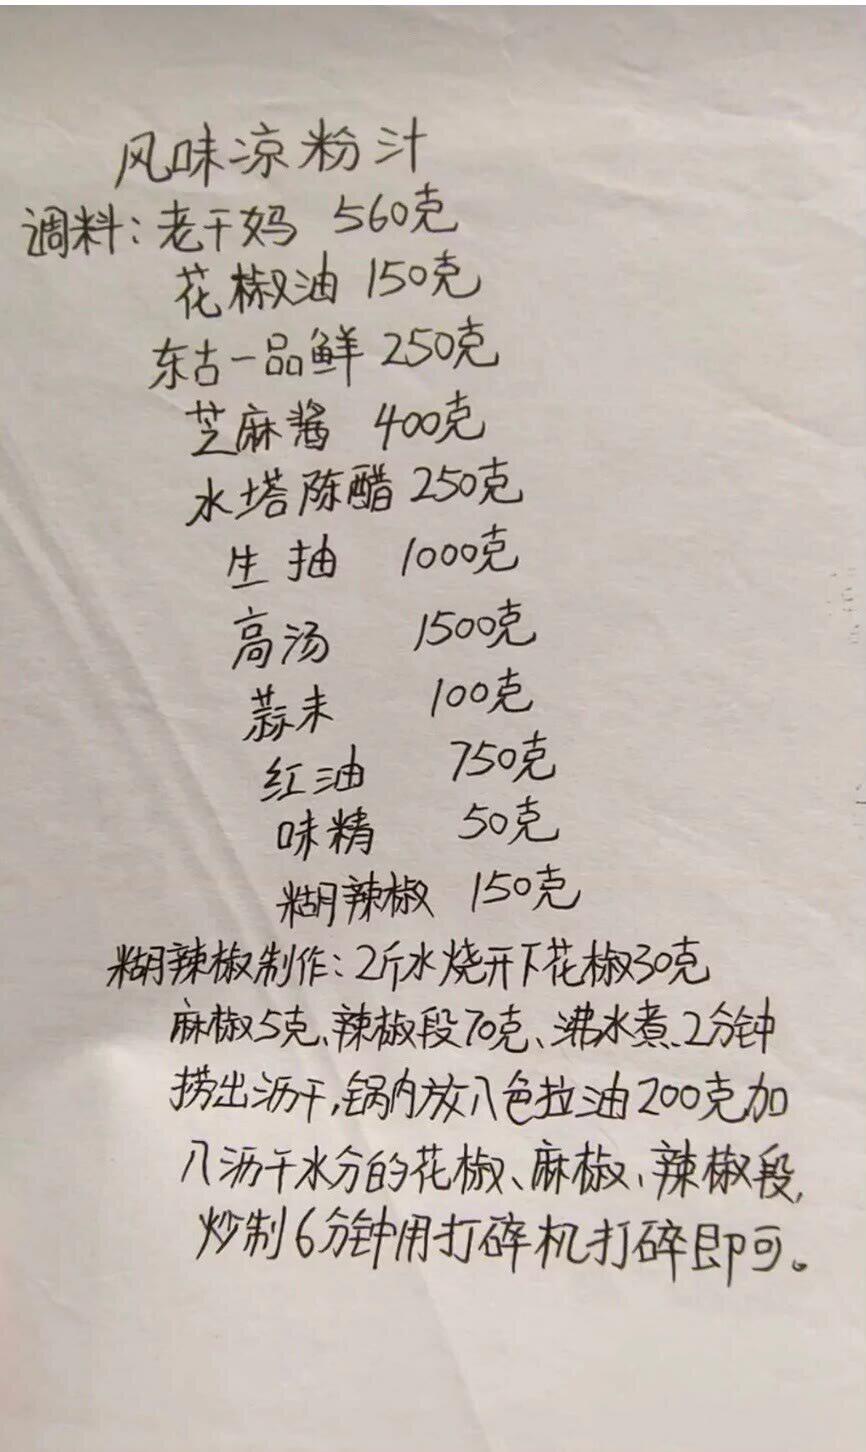 风味凉粉汁
调料：老干妈 560克
花椒油 150克
东古一品鲜 250克
芝麻酱 400克
水塔陈醋 250克
生抽 1000克
高汤 1500克
蒜末 100克
红油 750克
味精 50克
糊辣椒 150克
糊辣椒制作：2斤水烧开下花椒30克
麻椒5克、辣椒段70克、沸水煮2分钟
捞出沥干，锅内放入色拉油200克加
入沥干水分的花椒、麻椒、辣椒段，
炒制6分钟用打碎机打碎即可。